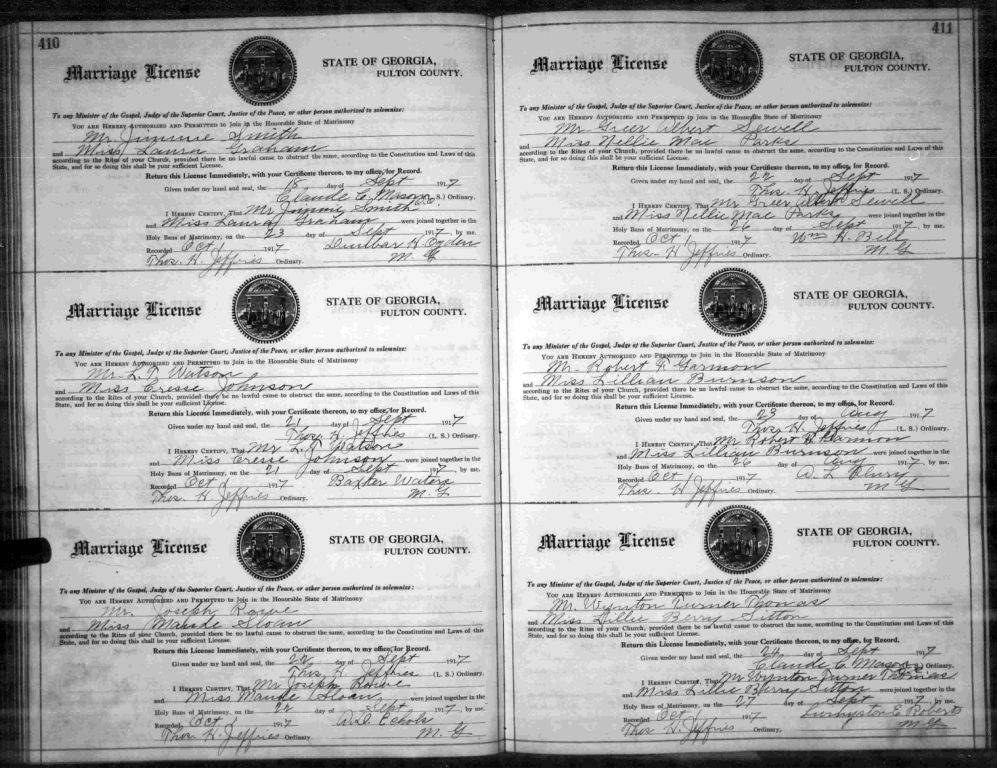 410
Marriage License
STATE OF GEORGIA,
FULTON COUNTY.
To any Minister of the Gospel, Judge of the Superior Court, Justice of the Peace, or other person authorized to solemnize:
YOU ARE HEREBY AUTHORIZED AND PERMITTED to Join in the Honorable State of Matrimony
Mr Jimmie Smith
and Miss Laura Graham
according to the Rites of your Church, provided there be no lawful cause to obstruct the same, according to the Constitution and Laws of this
State, and for so doing this shall be your sufficient License.
Return this License Immediately, with your Certificate thereon, to my office, for Record.
Given under my hand and seal, the 18 day of Sept 1917
Claude C. Mason
I HEREBY CERTIFY, That Mr Jimmie Smith
and Miss Laura Graham were joined together in the
Holy Bans of Matrimony, on the 23 day of Sept 1917, by me.
Recorded Oct 1 1917 Dunbar H Ogden
Thos. H. Jeffries Ordinary. M. G
Marriage License
STATE OF GEORGIA,
FULTON COUNTY.
To any Minister of the Gospel, Judge of the Superior Court, Justice of the Peace, or other person authorized to solemnize:
YOU ARE HEREBY AUTHORIZED AND PERMITTED to Join in the Honorable State of Matrimony
Mr. L. Watson
and Miss Cresse Johnson
according to the Rites of your Church, provided there be no lawful cause to obstruct the same, according to the Constitution and Laws of this
State, and for so doing this shall be your sufficient License.
Return this License Immediately, with your Certificate thereon, to my office, for Record.
Given under my hand and seal, the 21 day of Sept 1917
Thos. H. Jeffries (L. S.) Ordinary.
I HEREBY CERTIFY, That Mr L. Watson
and Miss Cresse Johnson were joined together in the
Holy Bans of Matrimony, on the 21 day of Sept 1917, by me.
Recorded Oct 1 1917 Baxter Waters
Thos. H Jeffries Ordinary. M. G
Marriage License
STATE OF GEORGIA,
FULTON COUNTY.
To any Minister of the Gospel, Judge of the Superior Court, Justice of the Peace, or other person authorized to solemnize:
YOU ARE HEREBY AUTHORIZED AND PERMITTED to Join in the Honorable State of Matrimony
Mr. Joseph Rowe
and Miss Maude Sloan
according to the Rites of your Church, provided there be no lawful cause to obstruct the same, according to the Constitution and Laws of this
State, and for so doing this shall be your sufficient License.
Return this License Immediately, with your Certificate thereon, to my office, for Record.
Given under my hand and seal, the 22 day of Sept 1917
Thos H Jeffries (L. S.) Ordinary.
I HEREBY CERTIFY, That Mr Joseph Rowe
and Miss Maude Sloan were joined together in the
Holy Bans of Matrimony, on the 22 day of Sept 1917, by me.
Recorded Oct 1 1917 Echols
Thos H. Jeffries Ordinary. M. G
411
Marriage License
STATE OF GEORGIA,
FULTON COUNTY.
To any Minister of the Gospel, Judge of the Superior Court, Justice of the Peace, or other person authorized to solemnize:
YOU ARE HEREBY AUTHORIZED AND PERMITTED to Join in the Honorable State of Matrimony
Mr. Greer Albert Sewell
and Miss Nellie Mae Parks
according to the Rites of your Church, provided there be no lawful cause to obstruct the same, according to the Constitution and Laws of this
State, and for so doing this shall be your sufficient License.
Return this License Immediately, with your Certificate thereon, to my office, for Record.
Given under my hand and seal, the 22 day of Sept 1917
Thos. H. Jeffries (L. S.) Ordinary.
I HEREBY CERTIFY, That Mr Greer Albert Sewell
and Miss Nellie Mae Parks were joined together in the
Holy Bans of Matrimony, on the 26 day of Sept 1917, by me.
Recorded Oct 1 1917 Wm H. Bell
Thos. H Jeffries Ordinary. M. G
Marriage License
STATE OF GEORGIA,
FULTON COUNTY.
To any Minister of the Gospel, Judge of the Superior Court, Justice of the Peace, or other person authorized to solemnize:
YOU ARE HEREBY AUTHORIZED AND PERMITTED to Join in the Honorable State of Matrimony
Mr. Robert Garmon
and Miss Lillian Burnson
according to the Rites of your Church, provided there be no lawful cause to obstruct the same, according to the Constitution and Laws of this
State, and for so doing this shall be your sufficient License.
Return this License Immediately, with your Certificate thereon, to my office, for Record.
Given under my hand and seal, the 23 day of Aug 1917
Thos. H. Jeffries (L. S.) Ordinary.
I HEREBY CERTIFY, That Mr Robert Garmon
and Miss Lillian Burnson were joined together in the
Holy Bans of Matrimony, on the 26 day of Aug 1917, by me.
Recorded Oct 1 1917 A. L.
Thos. H Jeffries Ordinary. M G
Marriage License
STATE OF GEORGIA,
FULTON COUNTY.
To any Minister of the Gospel, Judge of the Superior Court, Justice of the Peace, or other person authorized to solemnize:
YOU ARE HEREBY AUTHORIZED AND PERMITTED to Join in the Honorable State of Matrimony
Mr. Wynton Turner Thomas
and Miss Lillie Berry Sitton
according to the Rites of your Church, provided there be no lawful cause to obstruct the same, according to the Constitution and Laws of this
State, and for so doing this shall be your sufficient License.
Return this License Immediately, with your Certificate thereon, to my office, for Record.
Given under my hand and seal, the 26 day of Sept 1917
Claude C. Mason Ordinary.
I HEREBY CERTIFY, That Mr Wynton Turner Thomas
and Miss Lillie Berry Sitton were joined together in the
Holy Bans of Matrimony, on the 27 day of Sept 1917, by me.
Recorded Oct 1 1917 E. Roberts
Thos H. Jeffries Ordinary, M. G